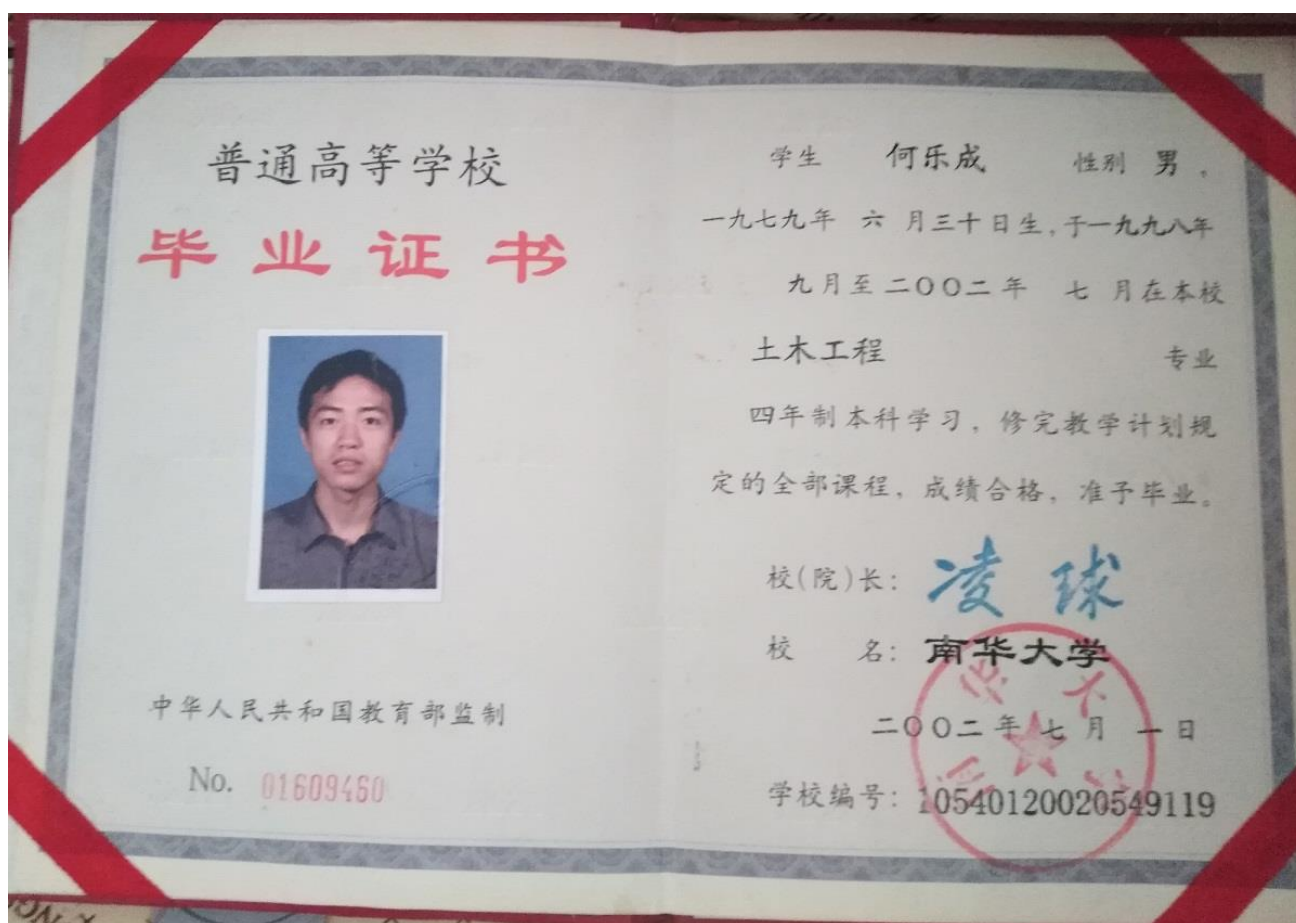 普通高等学校
毕业证书
中华人民共和国教育部监制
No. 01609460
学生 何乐成 性别 男，
一九七九年 六 月三十日生，于一九九八年
九月至二〇〇二年 七 月在本校
土木工程 专业
四年制本科学习，修完教学计划规
定的全部课程，成绩合格，准予毕业。
校(院)长：凌球
校 名：南华大学
二〇〇二年七月一日
学校编号：10540120020549119